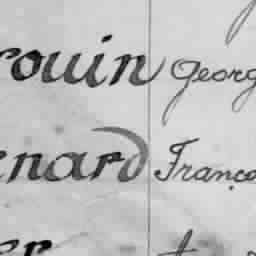 rouin Georg
enard Franço
er